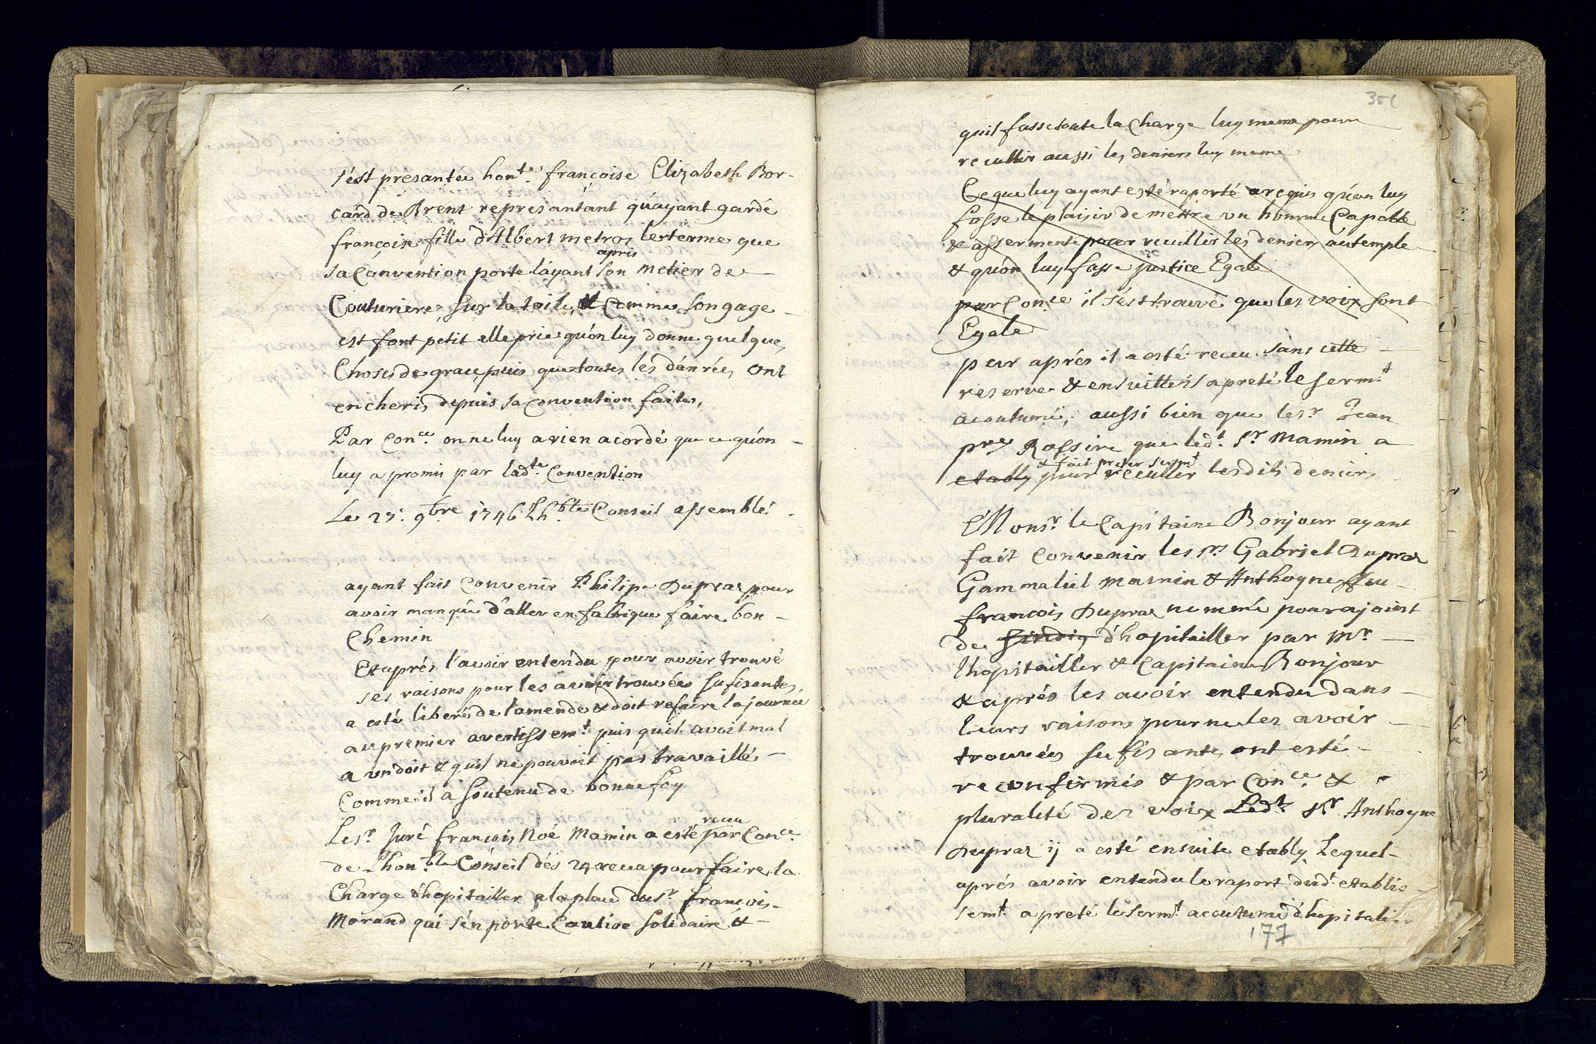 s'est presantée hon.te françoise Elizabeth Bor-
card de Arent represantant qu'ayant gardé
françoise fille d'Albert metroz le terme que
sa Convention porte l'ayant apris son metier de
Couturiere, sur la toile, & Comme son gage
est fort petit elle prie qu'on luy donne quelque,
Chose de grace, puis que toutes les danrées ont
encheris depuis sa Convention faite,
Par Con.ce on ne luy a rien acordé que ce qu'on
luy a promis par lad.te Convention
Le 27.e 9bre 1746 Lh.ble Conseil assemblé
ayant fait Convenir Philipe Dupraz pour
avoir manqué d'aller en fabrique faire bon
Chemin
Et aprés l'avoir entendu pour avoir trouvé
ses raisons pour les avoir trouvées sufisantes
a esté liberé de l'amende & doit refaire la journée
au premier avertissem.t puis quil avoit mal
a un doit & quil ne pouvoit pas travaillé
Comme il a soutenu de bonne foy
Le sr Juré françois Noé Mamin a esté receu par Con.ce
de L'hon.ble Conseil dés 24 receu pour faire la
Charge d'hopitailler a la place du sr françois
Morand qui s'en porte Caution solidaire &
351
quil fasse toute la Charge luy meme pour
recullir aussi les deniers luy meme
Ce que luy ayant esté raporté a requis qu'on luy
fasse le plaisir de mettre un homme Capable
& assermenté pour recullir les deniers au temple
& qu'on luy fasse justice Egale
par Con.ce il s'est trouvé que les voix sont
Egale
par aprés il a osté receu sans cette
reserve & ensuitte il a preté le serm.t
acoutumé, aussi bien que le sr Jean
pre Rossire que led.t Sr Mamin a
etably & fait preter serm.t pour recullir lesdits deniers
Monsr le Capitaine Bonjour ayant
fait Convenir les srs Gabriel Dupraz
Gammaliel Mamin & Anthoyne feu
françois Dupraz nommé pour ajoint
de Sindiq d'hopitailler par Mr
l'hopitailler & Capitaine Bonjour
& aprés les avoir entendu dans
leurs raisons pour ne les avoir
trouvées sufisante, ont esté
reconfirmés & par Con.ce &
pluralité des voix Led.t Sr Anthoyne
Dupraz ij a esté ensuite etably Lequel
aprés avoir entendu le raport dud.t etablis-
sem.t a preté le serm.t accutumé d'hopitalier
177